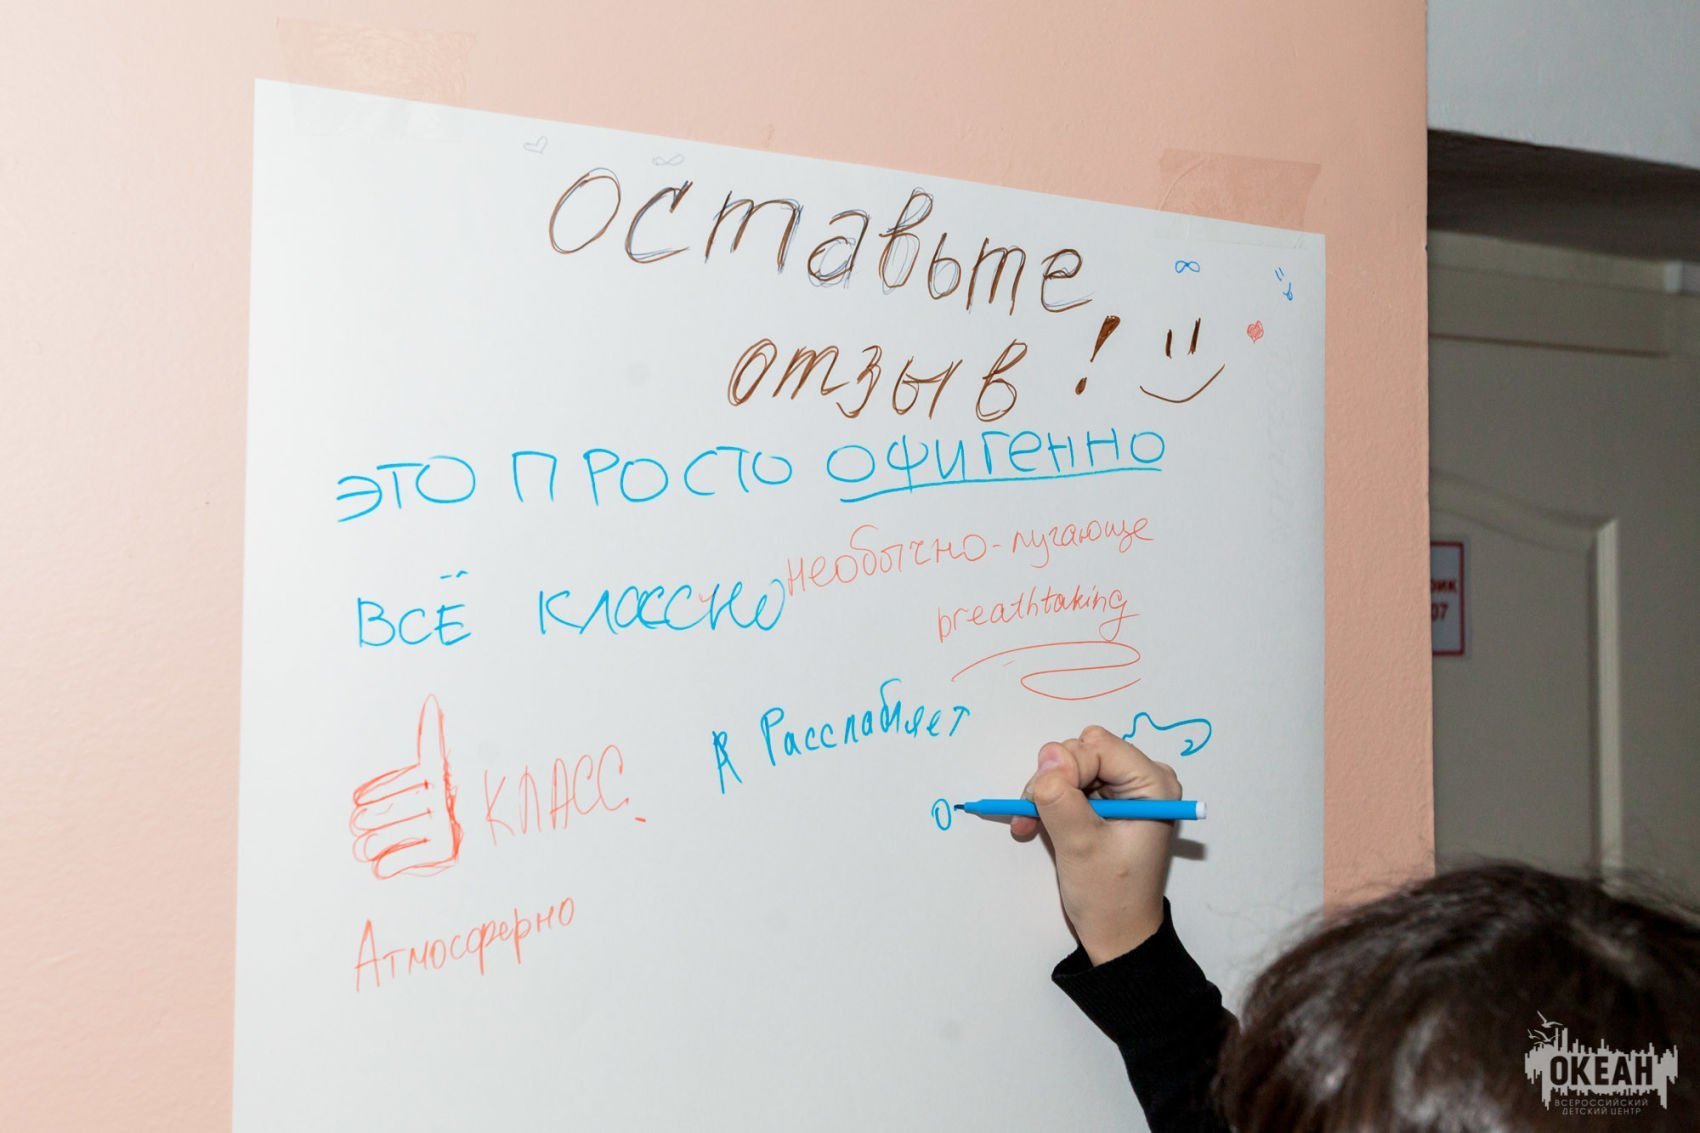 Оставьте
отзыв!
ЭТО ПРОСТО ОФИГЕННО
необычно-пугающе
ВСЁ КЛАССНО
breathtaking
Расслабляет
КЛАСС.
О
Атмосферно
ОКЕАН
ВСЕРОССИЙСКИЙ
ДЕТСКИЙ ЦЕНТР